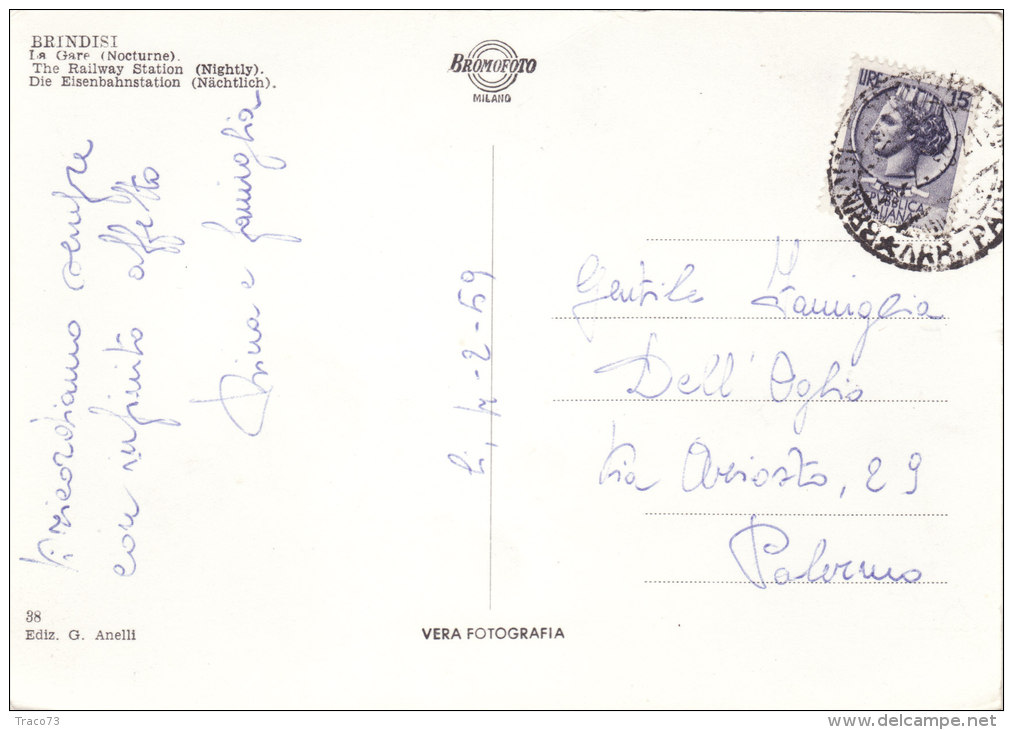 BRINDISI
La Gare (Nocturne).
The Railway Station (Nightly).
Die Eisenbahnstation (Nächtlich).
BROMOFOTO
MILANO
LIRE 15
REPUBBLICA
ITALIANA
BRINDISI
ARR.-PAR
Vi ricordiamo sempre
con infinito affetto
e famiglia
Li, 14-2-59
Gentile Famiglia
Dell'Oglio
Via Ariosto, 29
Palermo
38
Ediz. G. Anelli
VERA FOTOGRAFIA
Traco73
www.delcampe.net